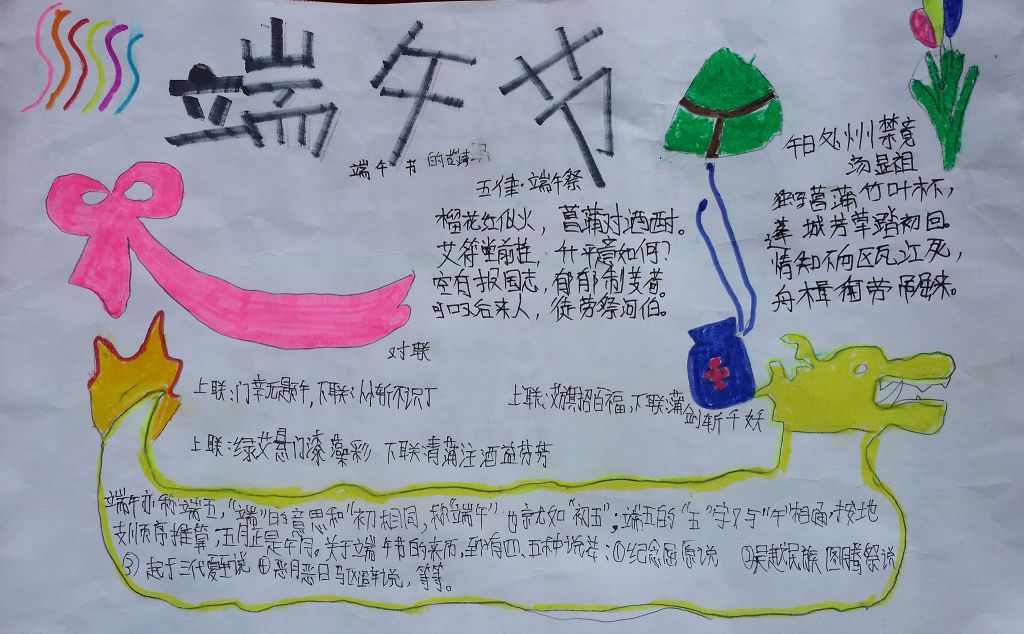 端午节
端午节的
五律·端午祭
榴花红似火，菖蒲对酒酣。
艾符堂前挂，升平意如何？
空有报国志，郁郁制芰荷。
后来人，徒劳祭河伯。
午日处州禁竞
汤显祖
独写菖蒲竹叶杯，
莲城芳草踏初回。
情知不向瓯江死，
舟楫何劳吊屈来。
对联
上联：门幸无题午，下联：人惭不识丁
上联：艾旗招百福，下联：蒲
剑斩千妖
上联：绿艾悬门漆藻彩 下联青蒲注酒益芬芳
端午亦称端五，“端”的意思和“初”相同，称“端午”也就如“初五”；端五的“五”字又与“午”相通，按地
支顺序推算，五月正是午月。关于端午节的来历，到有四、五种说法：①纪念屈原说 ②吴越民族图腾祭说
③起于三代夏至说④恶月恶日驱避说，等等。